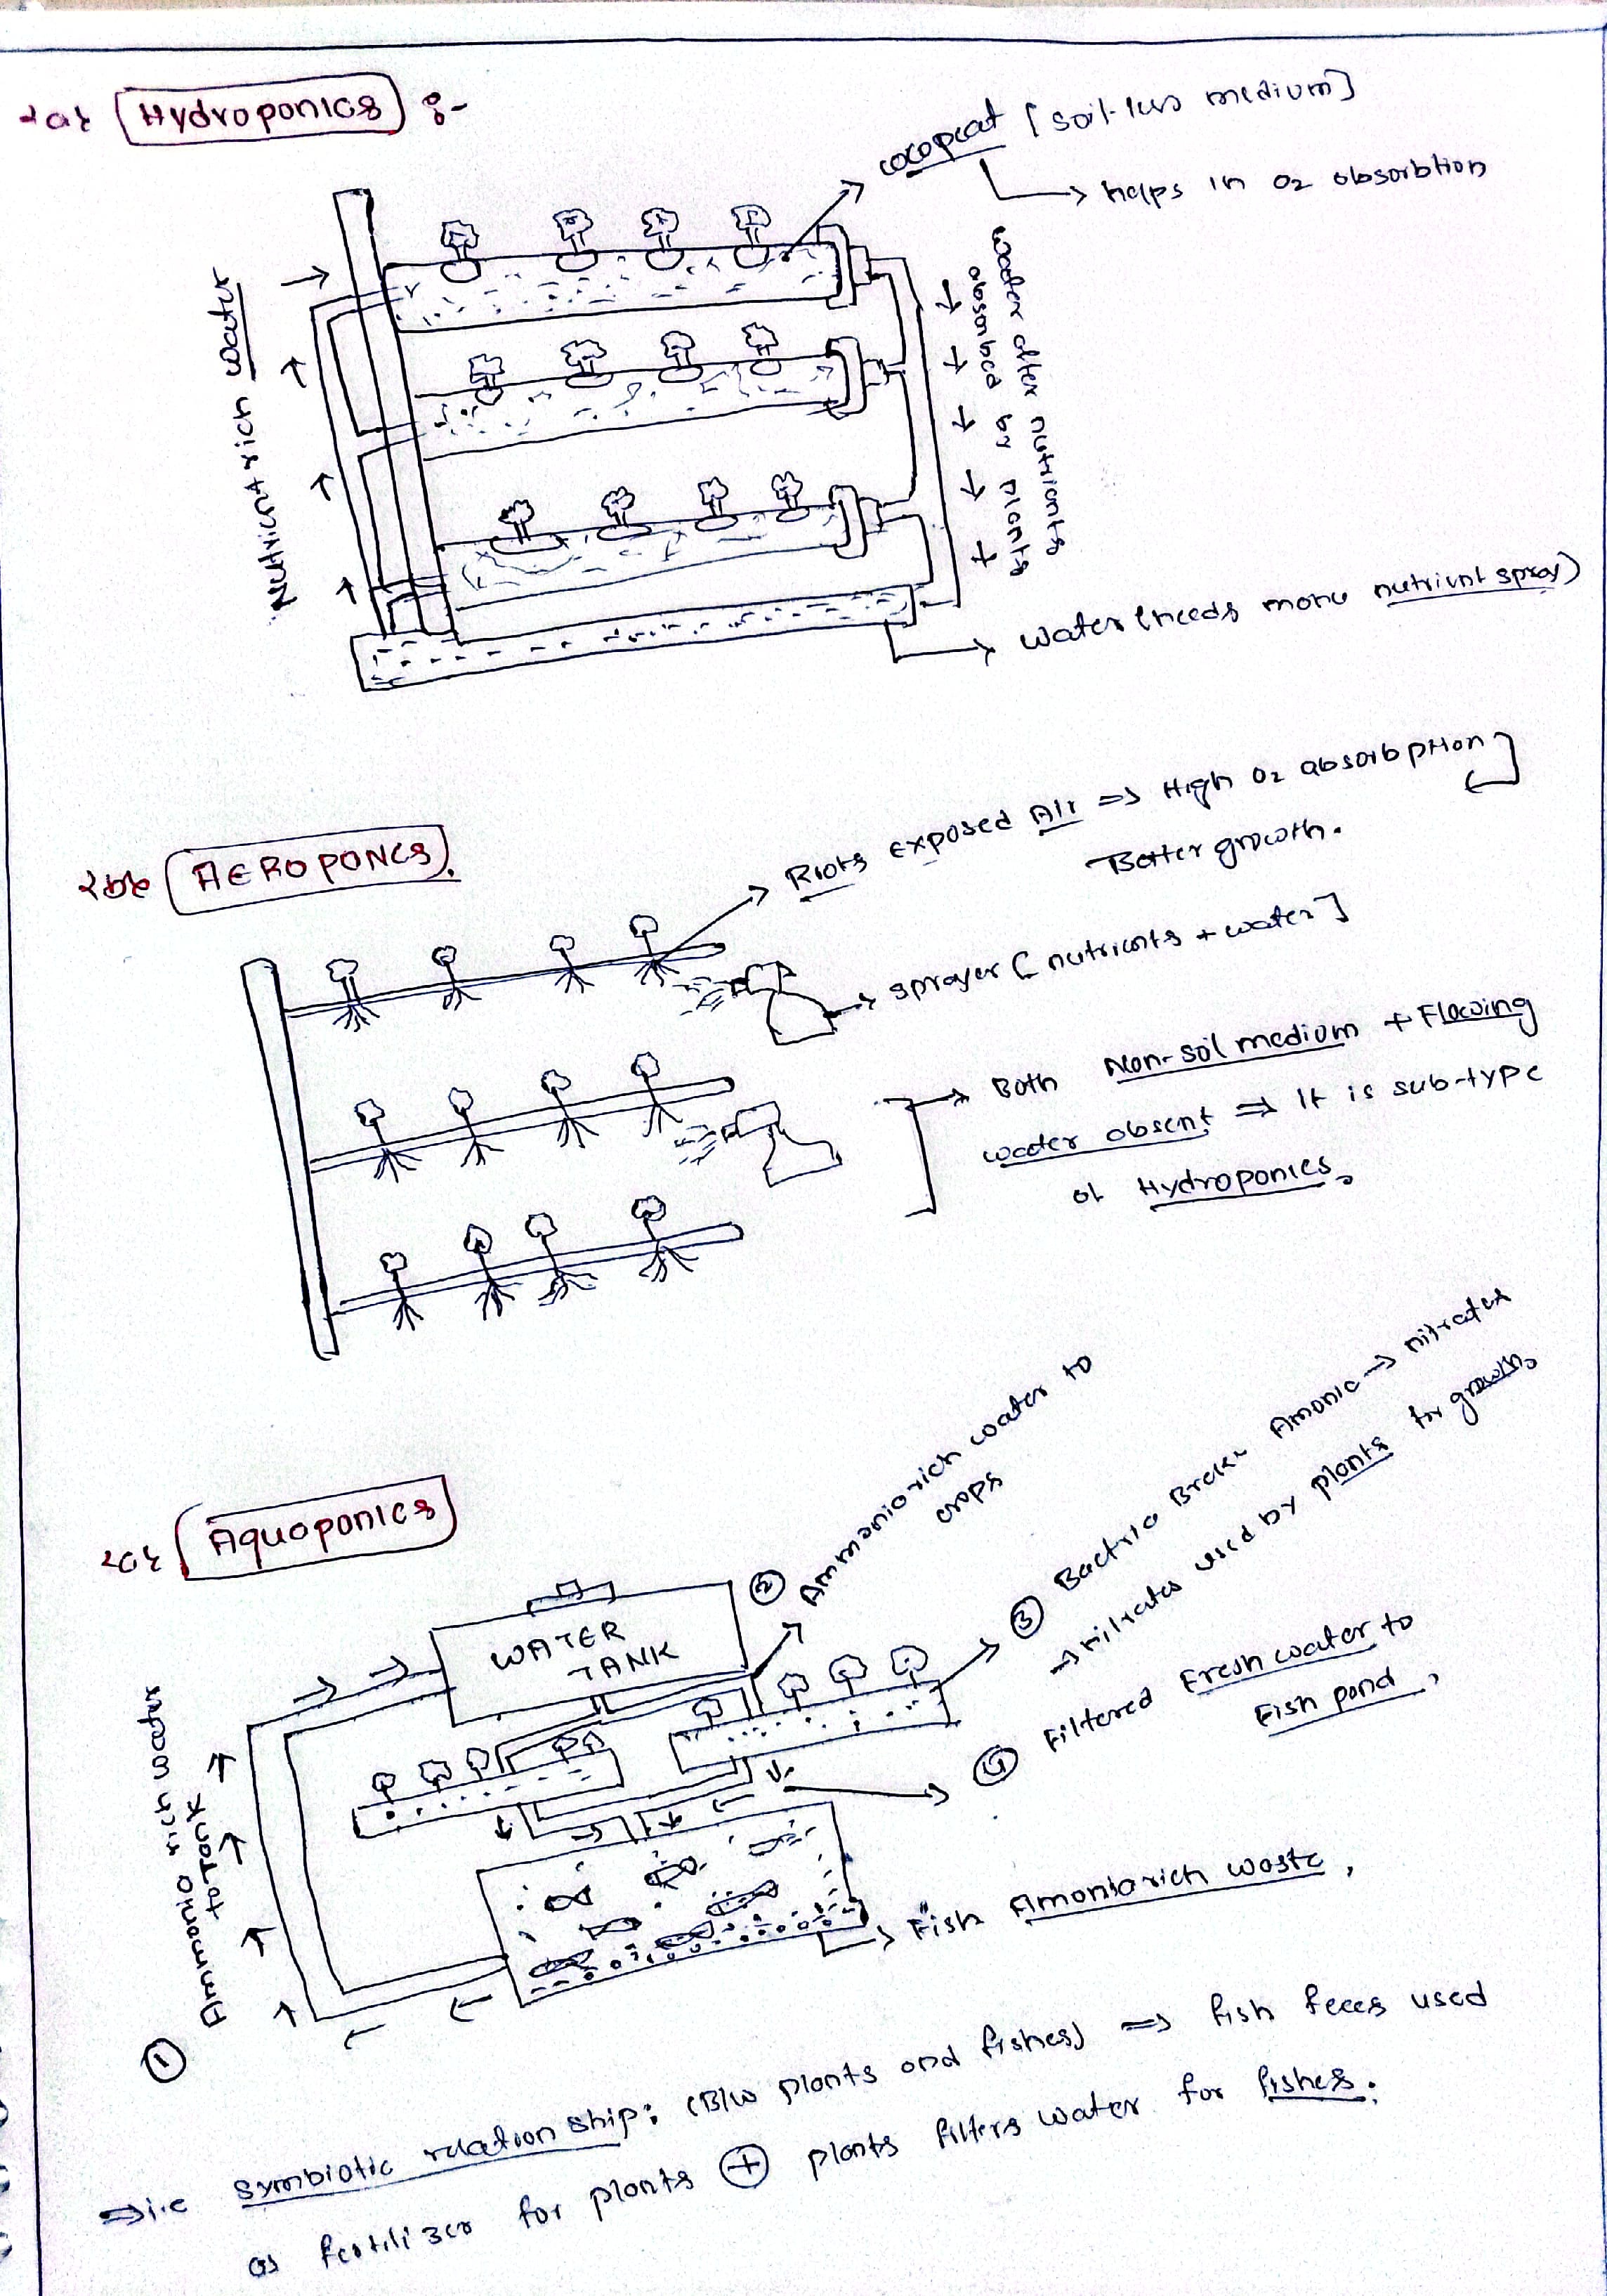 2a} Hydroponics :-
cocopeat [soil-less medium]
helps in O2 absorbtion
Nutrient rich water
water after nutrients
absorbed by plants
water (needs more nutrient spray)
2b} AEROPONCS.
Roots exposed Air => High O2 absorbption
Better growth.
sprayer [nutrients + water]
Both Non-soil medium + Flowing
water absent => It is sub-type
of Hydroponics.
2c} Aquoponics
WATER
TANK
② Ammonia rich water to
crops
③ Bactria Broke Amonia → nitrates
→ nitrates used by plants for growth.
④ Filtered Fresh water to
Fish pond,
Fish Amonia rich waste,
① Ammonia rich water
to Tank
=> i.e symbiotic relation ship: (B/w plants and fishes) => fish feces used
as fertilizer for plants ⊕ plants filters water for fishes.